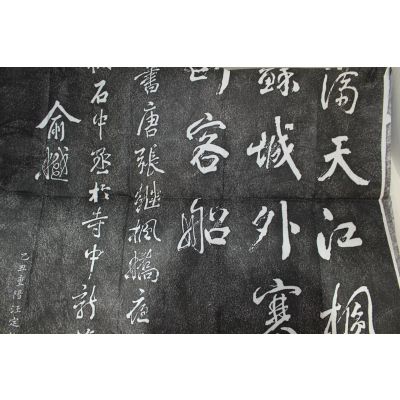 滿天江楓
蘇城外寒
到客船
書唐張繼楓橋夜
石中丞於寺中新
俞樾
己丑重陽汪定